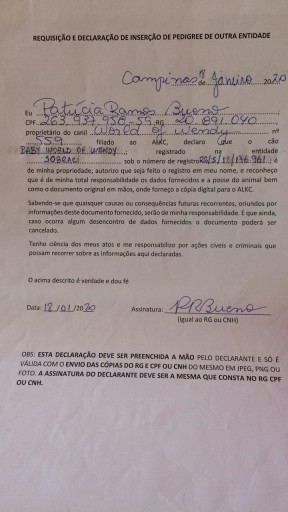 REQUISIÇÃO E DECLARAÇÃO DE INSERÇÃO DE PEDIGREE DE OUTRA ENTIDADE
Campinas de Janeiro 2020
Eu Patrícia Ramos Bueno
CPF 263.937.958-59 RG 20.891.040
proprietário do canil World of Wendy nº
559 filiado ao ALKC, declaro que o cão
BABY WORLD OF WENDY registrado na entidade
SOBRACI sob o número de registro é
de minha propriedade, autorizo que seja feito o registro em meu nome, e reconheço
que é de minha total responsabilidade os dados fornecidos e a posse do animal bem
como o documento original em mãos, onde forneço a cópia digital para o ALKC.
Sabendo-se que quaisquer causas ou consequências futuras recorrentes, oriundos por
informações deste documento fornecido, serão de minha responsabilidade. E que ainda,
caso ocorra algum desencontro de dados fornecidos o documento poderá ser
cancelado.
Tenho ciência dos meus atos e me responsabilizo por ações cíveis e criminais que
possam recorrer sobre as informações aqui declaradas.
O acima descrito é verdade e dou fé
Data: 12/01/2020 Assinatura: PRBueno
(Igual ao RG ou CNH)
OBS: ESTA DECLARAÇÃO DEVE SER PREENCHIDA A MÃO PELO DECLARANTE E SÓ É
VÁLIDA COM O ENVIO DAS CÓPIAS DO RG E CPF OU CNH DO MESMO EM JPEG, PNG OU
FOTO. A ASSINATURA DO DECLARANTE DEVE SER A MESMA QUE CONSTA NO RG CPF
OU CNH.